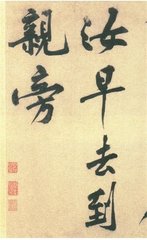 汝早去到
親旁